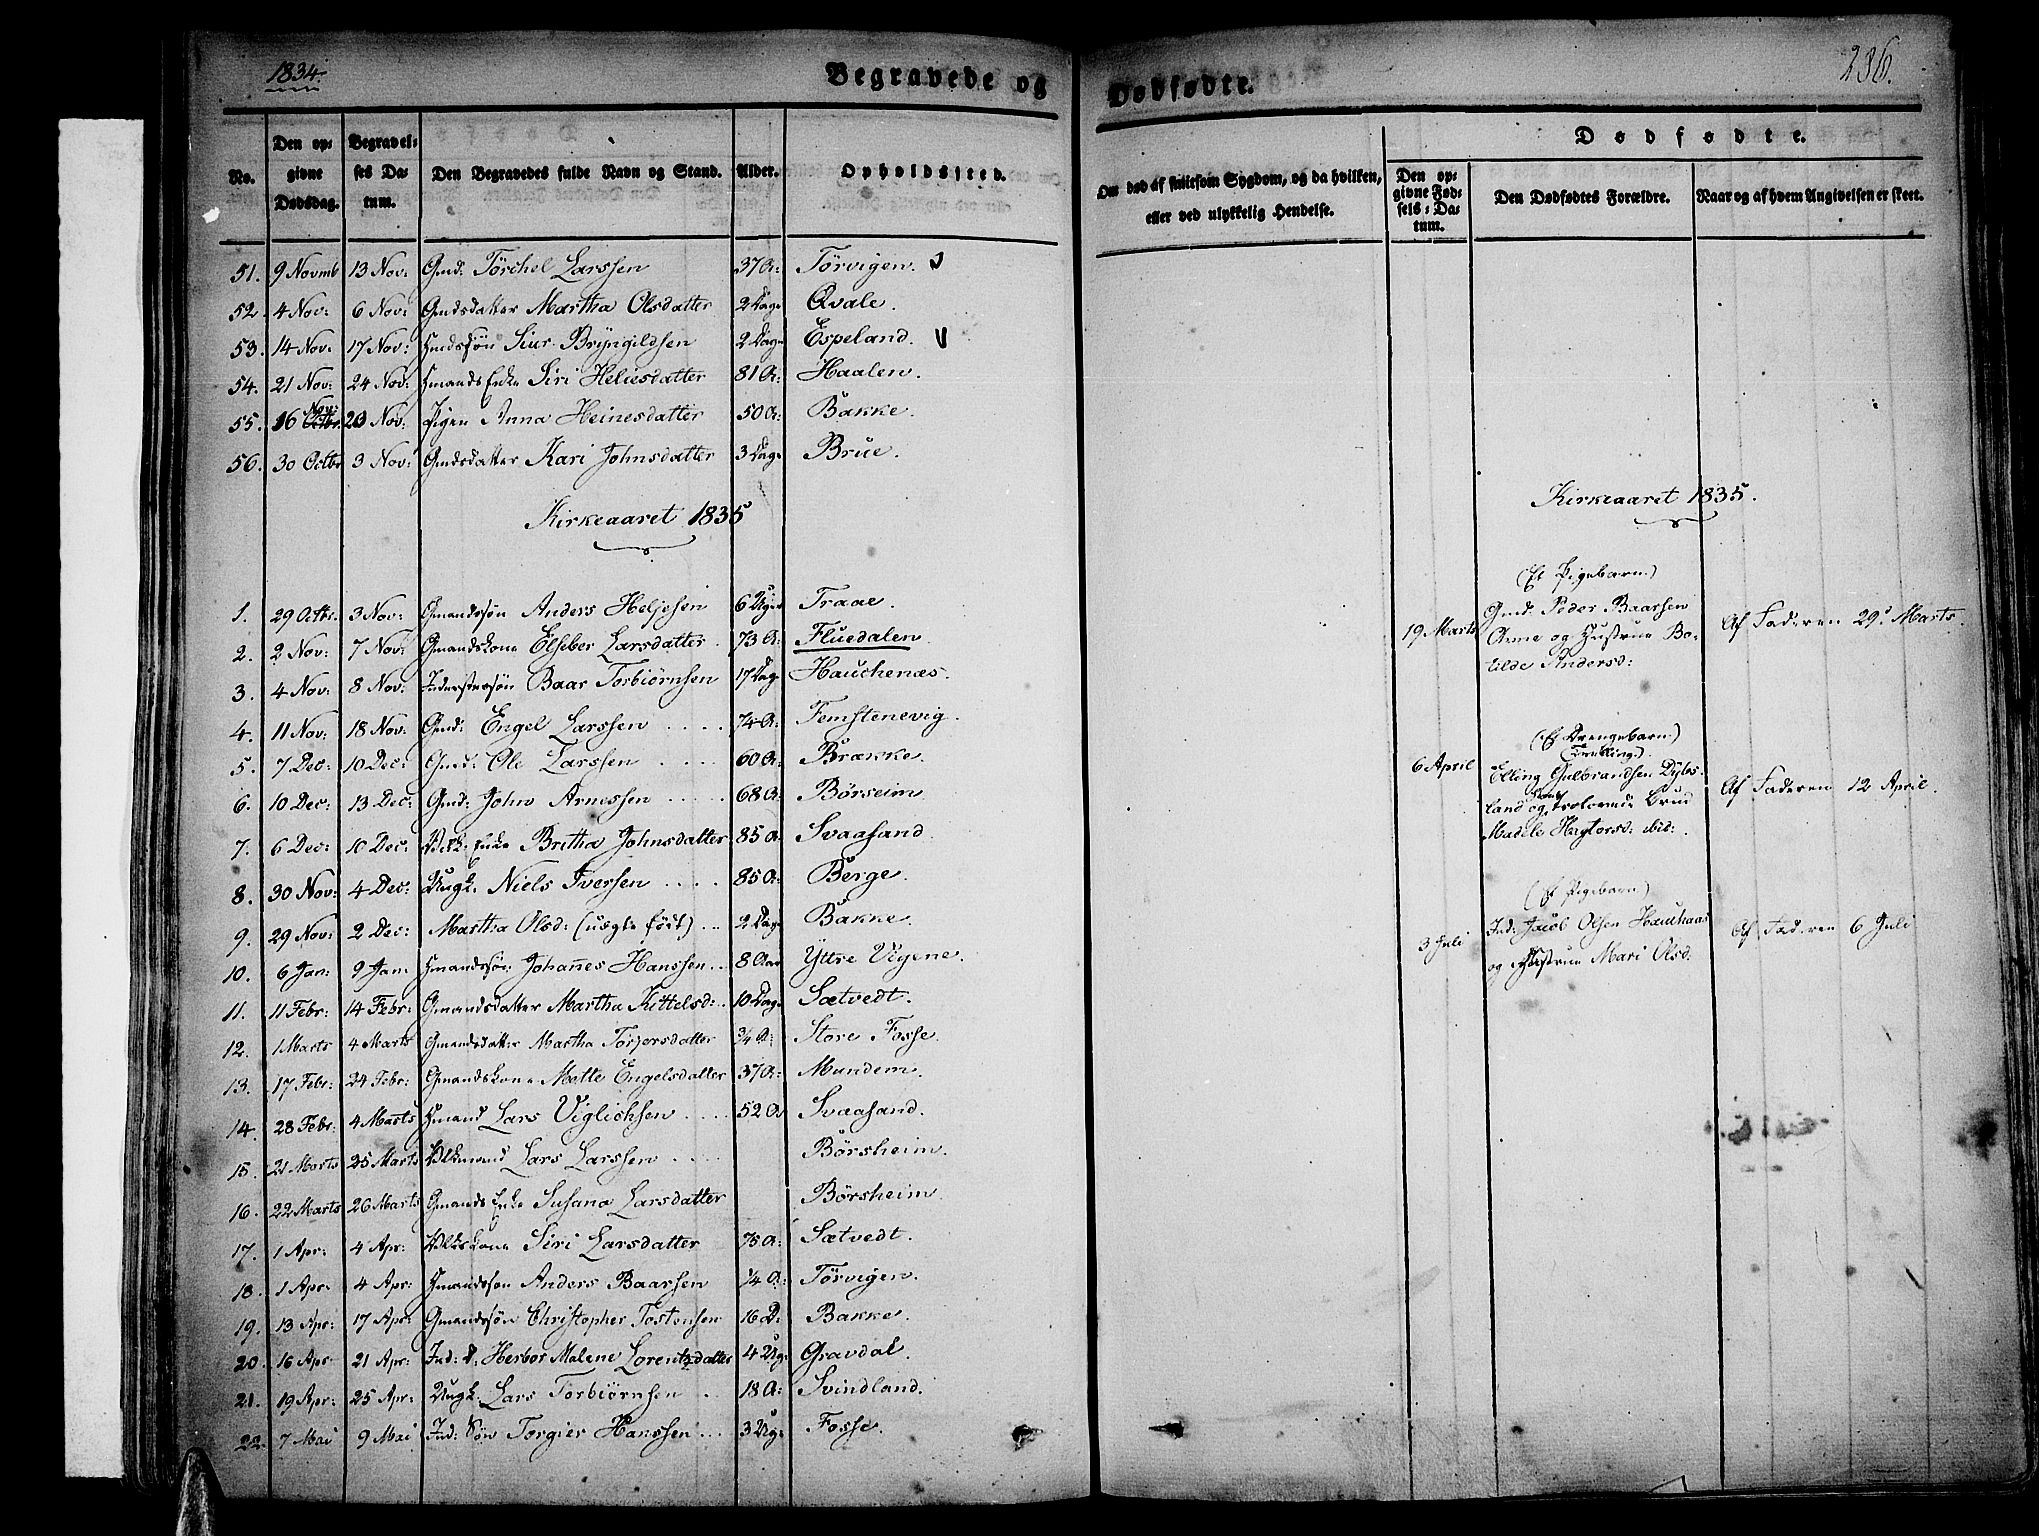 1834.
Begravede og
Dødfødte.
236.
No.
Den op-
givne
Dødsdag.
Begravel-
ses Da-
tum.
Den Begravedes fulde Navn og Stand.
Alder.
Opholdssted.
Om død af smitsom Sygdom, og da hvilken,
eller ved ulykkelig Hendelse.
Dødfødte.
Den op-
givne Fød-
sels-Da-
tum.
Den Dødfødtes Forældre.
Naar og af hvem Angivelsen er skeet.
51. 9 Novmb 13 Nov: Gmd: Törchel Larssen 37 A: Törvigen.
52. 4 Nov: 6 Nov: Gmdsdatter Martha Olsdatter 2 Dage Qvale.
53. 14 Nov. 17 Nov: Hmdssøn Siur Bryngildsen 2 Dage Espeland.
54. 21 Nov: 24 Nov: Hmands Enke Siri Heliesdatter 81 A: Haalen.
55. 16 Nov: 20 Nov: Pigen Anna Heinesdatter 50 A: Bakke.
56. 30 Octbr 3 Nov: Gmdsdatter Kari Johnsdatter 3 Dage Brue.
Kirkeaaret 1835
1. 29 Octbr. 3 Nov: Gmandssøn Anders Heljesen 6 Uger Traae.
2. 2 Nov: 7 Nov: Gmandskone Elseber Larsdatter 73 A: Fluedalen.
3. 4 Nov: 8 Nov: Indersterssøn Baar Torbiörnsen 17 Dage Hauchenæs.
4. 11 Nov: 18 Nov: Gmd: Engel Larssen 74 A: Femstenevig.
5. 7 Dec: 10 Dec: Gmd: Ole Larssen 60 A: Brække.
6. 10 Dec: 13 Dec: Gmd: John Arnessen 68 A: Börseim
7. 6 Dec: 10 Dec: Vilk: Enke Britha Johnsdatter 85 A: Svaasand.
8. 30 Nov: 4 Dec: Ungk: Niels Iversen 85 A: Berge.
9. 29 Nov: 2 Dec: Martha Olsd: (uægte født) 2 Dage Bakke.
10. 6 Jan: 9 Jan Hmandssøn: Johannes Hanssen 8 Aar Yttre Vigene.
11. 11 Febr: 14 Febr: Gmandsdatter Martha Kittelsd: 10 Dage Sætvedt.
12. 1 Marts 4 Marts Gmandsdatter Martha Torjersdatter 3/4 A: Store Fosse.
13. 17 Febr: 24 Febr: Gmandskone Mette Engelsdatter 37 A: Mundem.
14. 28 Febr: 4 Marts Hmand Lars Viglichsen 52 A Svaasand.
15. 21 Marts 25 Marts Vlkmand Lars Larssen Börsheim.
16. 22 Marts 26 Marts Gmands Enke Susana Larsdatter Börsheim.
17. 1 Apr: 4 Apr: Vlkskone Siri Larsdatter 75 A: Sætvedt.
18. 1 Apr: 4 Apr: Hmandssøn Anders Baarsen 1/4 A: Törvigen.
19. 13 Apr: 17 Apr: Gmandssøn Christopher Tostensen 16 D: Bakke.
20. 16 Apr 21 Apr: Ind: D. Herbor Malene Lorentzdatter 4 Ug: Gravdal.
21. 19 Apr: 25 Apr: Ungk: Lars Torbiörnsen 18 A: Svindland.
22. 7 Mai 9 Mai Ind: Søn Torgier Hanssen 3 Ug: Fosse.
Kirkeaaret 1835.
(Et Pigebarn)
19 Marts
Gmd: Peder Baarsen
Axne og Hustrue Bo-
tilde Andersd:
Af Faderen 29. Marts.
(Et Drengebarn)
(Tvelling)
6 April
Elling Gulbrandsen Dybs-
land og trolovede Brud
Madele Haftorsd: ibid:
Af Faderen 12 April.
(Et Pigebarn)
3 Juli
Ind: Jacob Olsen Hauhaas
og Hustrue Mari Olsd:
Af Faderen 6 Juli